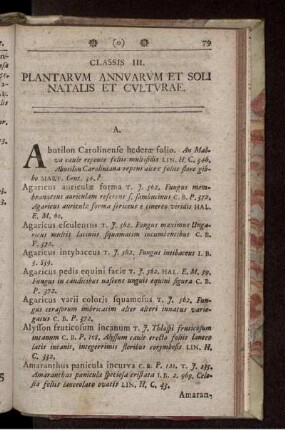 (o) 79
CLASSIS III.
PLANTARVM ANNVARVM ET SOLI
NATALIS ET CVLTVRAE.
A.
Abutilon Carolinense hederæ folio. An Mal-
va caule repente foliis multifidis LIN. H. C. 346.
Abutilon Carolinana repens alceæ foliis flore
MART. Cent. 34.
Agaricus auriculæ forma T. J. 562. Fungus mem-
branaceus auriculam referens s. sambucinus C. B. P. 372.
Agaricus auriculæ forma sericeus e cinereo versilis HAL.
E. M. 62.
Agaricus esculentus T. J. 562. Fungus maximus
multis laciniis squamatim incumbentibus C. B.
P. 372.
Agaricus intybaceus T. J. 562. Fungus intibaceus I. B.
3. 839.
Agaricus pedis equini facie T. J. 562. HAL. E. M. 59.
Fungus in caudicibus nascens unguis equini figura C. B.
P. 372.
Agaricus varii coloris squamosus T. J. 562. Fun-
gus cerasorum imbricatim alter alteri innatus varie-
gatus C. B. P. 372.
Alysson fruticosum incanum T. J. Thlaspi fruticosum
incanum C. B. P. 108. Alyssum caule erecto foliis lanceo-
latis incanis, integerrimis floribus corymbosis LIN. H.
C. 332.
Amaranthus panicula incurva C. B. P. 121. T. J. 235.
Amaranthus panicula speciosa cristata I. B. 2. 969. Celo-
sia foliis lanceolato ovatis LIN. H. C. 43.
Amaran-